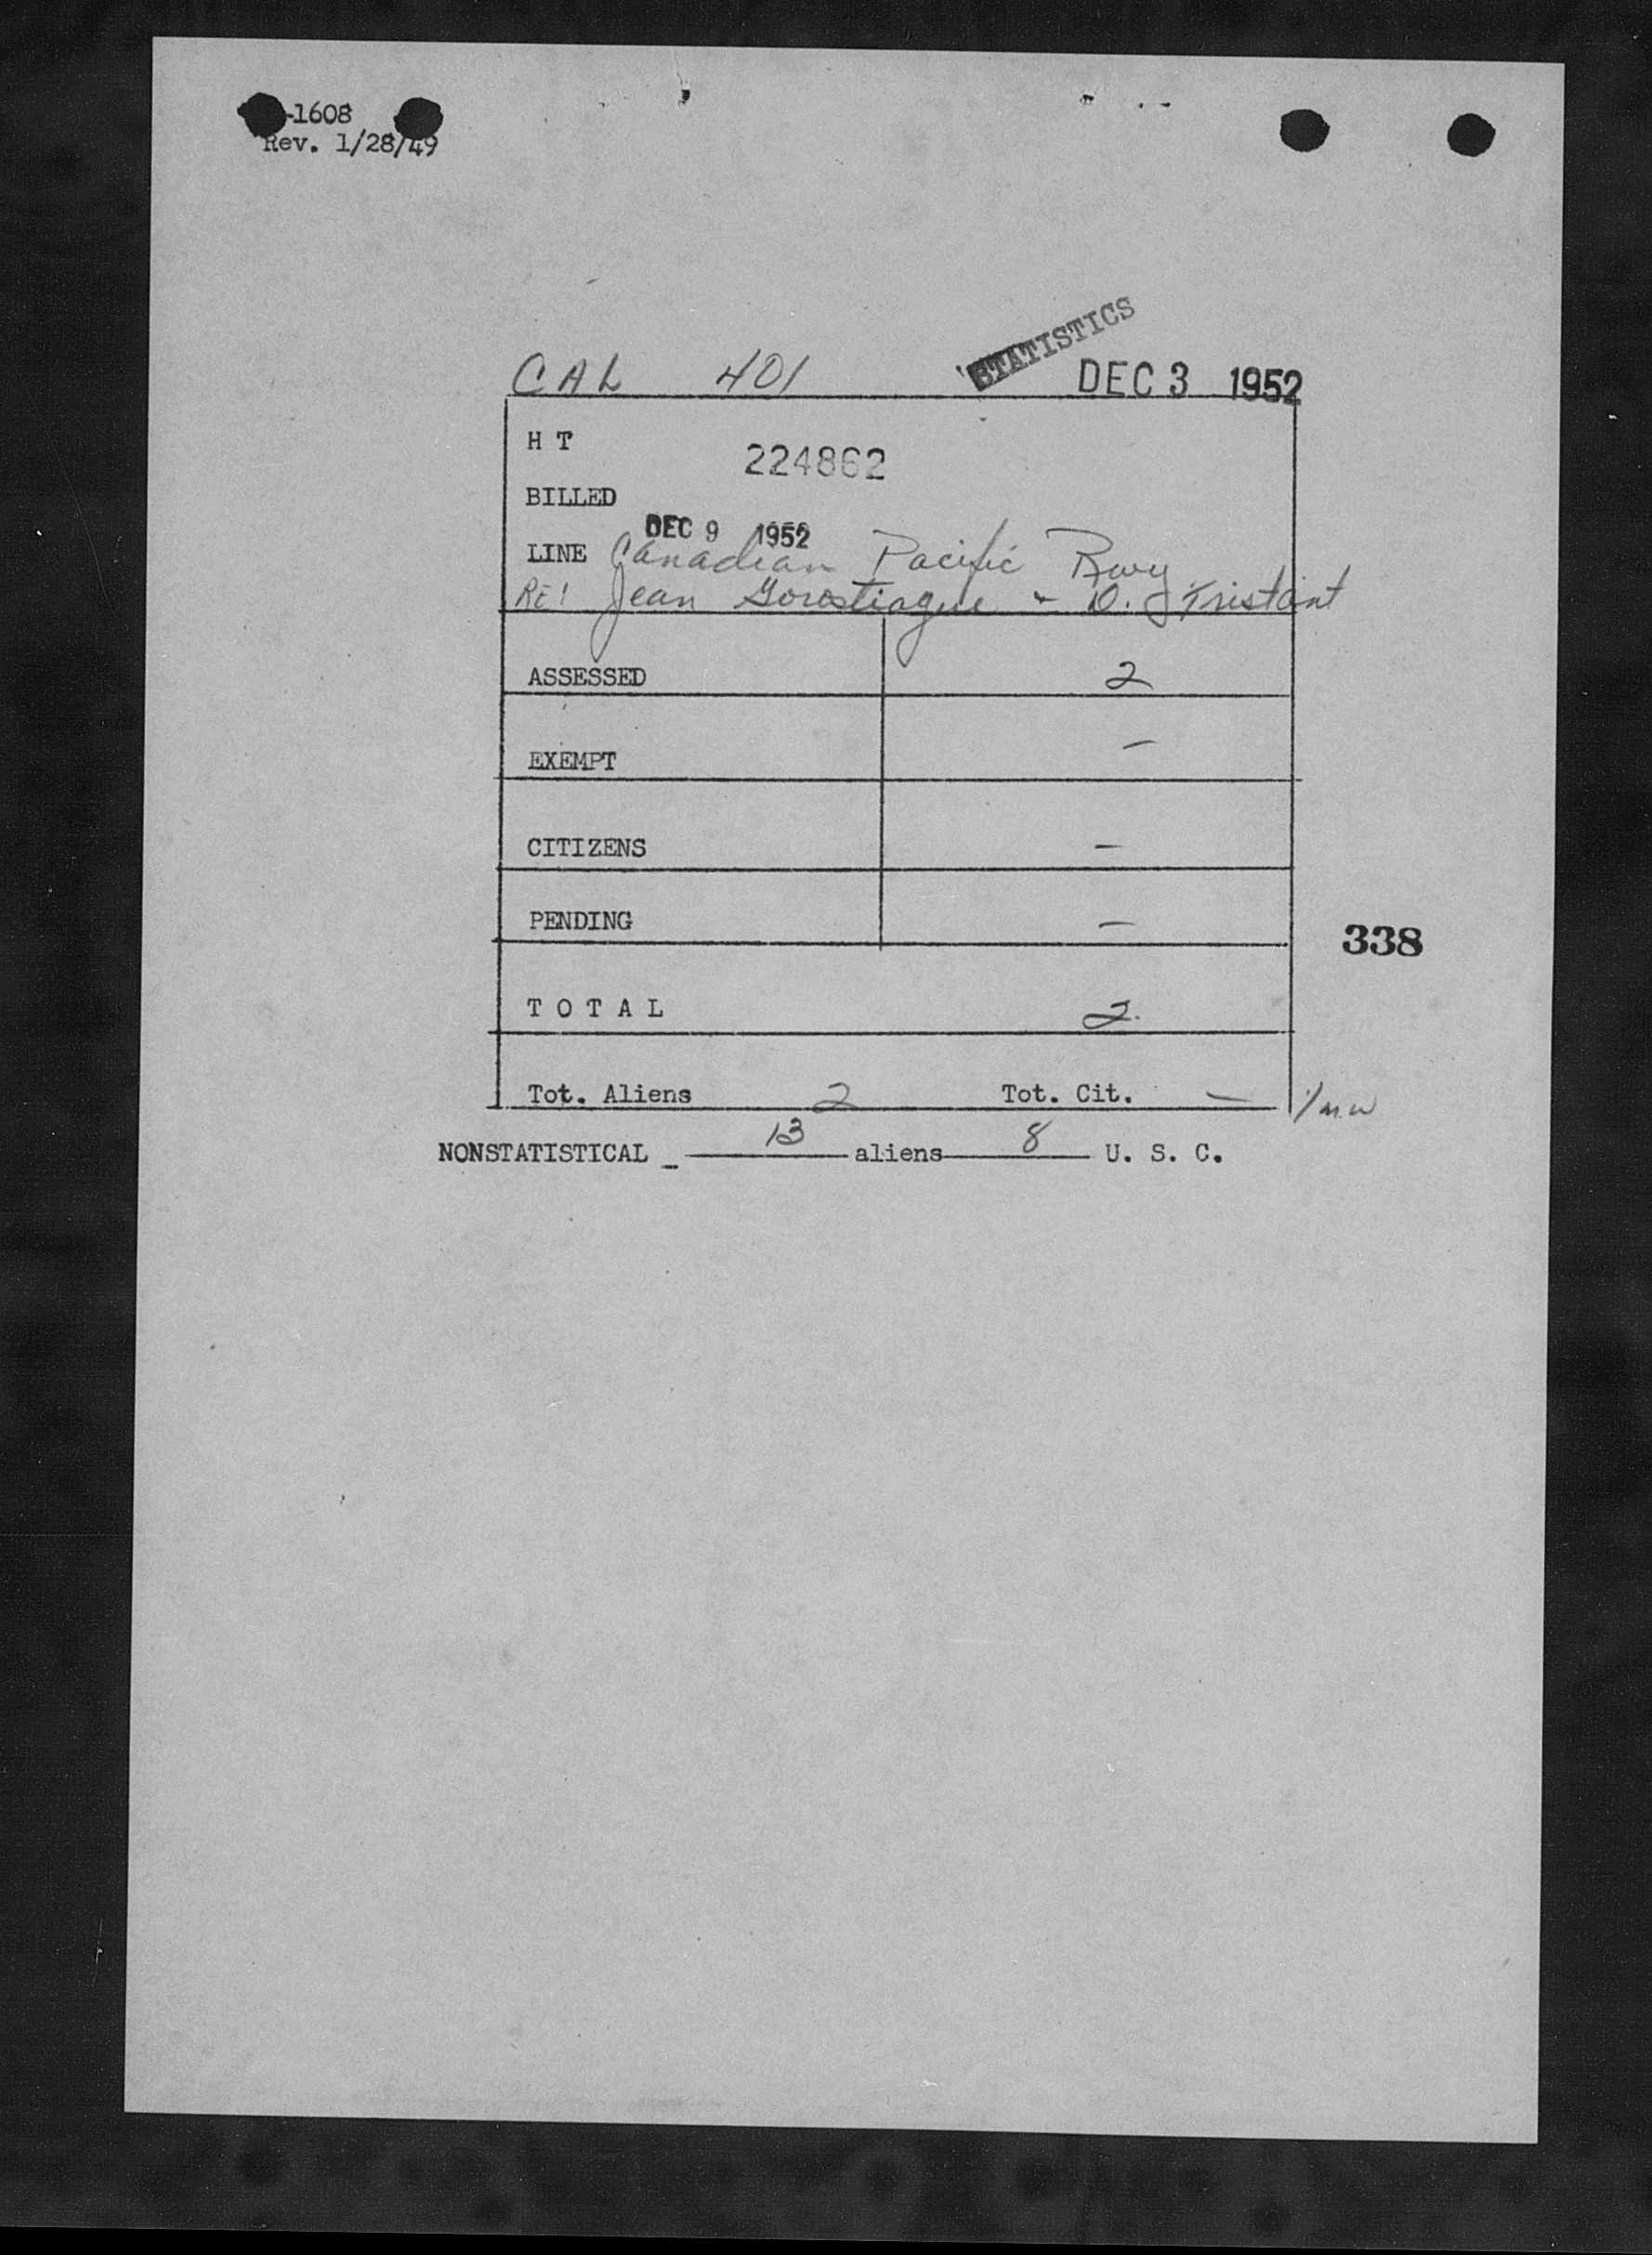 -1608
Rev. 1/28/49
STATISTICS
CAL 401 DEC 3 1952
H T
224862
BILLED
DEC 9 1952
LINE Canadian Pacific Rwy
RE: Jean Gorostiague & D. Tristant
ASSESSED 2
EXEMPT —
CITIZENS —
PENDING —
338
T O T A L 2
Tot. Aliens 2 Tot. Cit. —
NONSTATISTICAL 13 aliens 8 U. S. C.